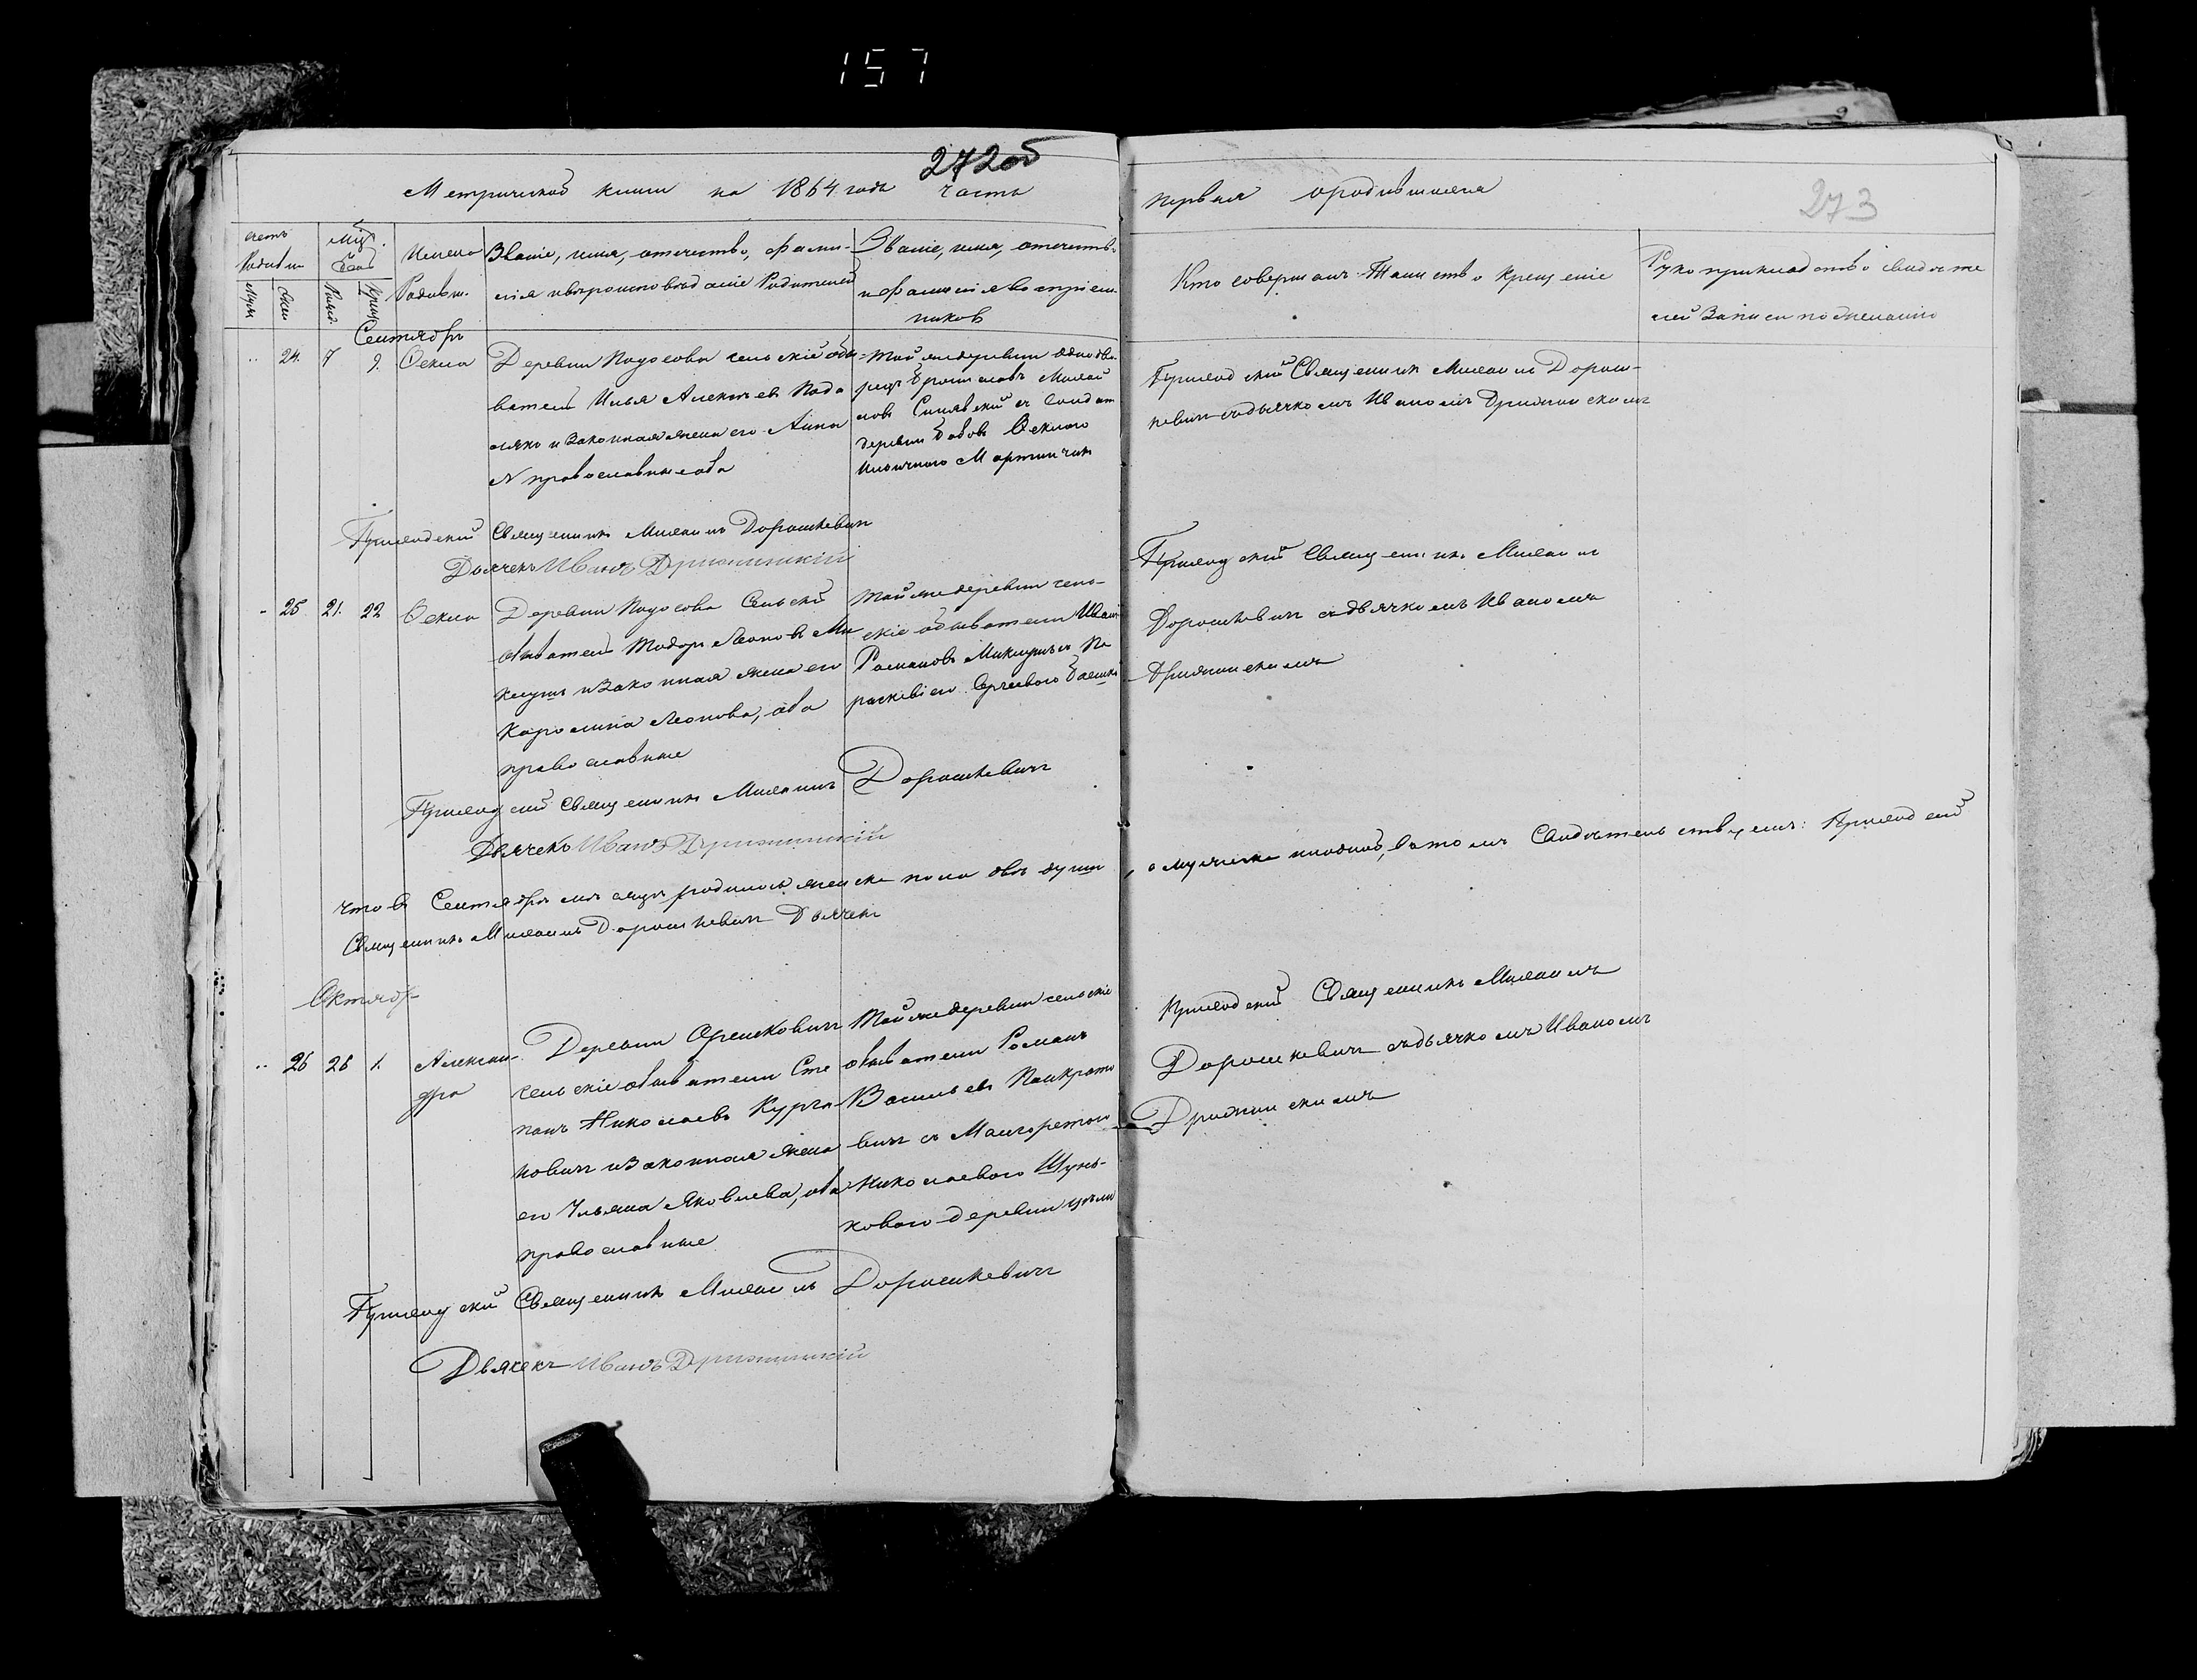 157
272об
Метрической книги на 1864 года часть
первая о родившихся
273
Счетъ Родивш.
Муж.
Жен.
Мцъ и День
Рожд.
Крещ.
Имена Родивш.
Званіе, имя, отечество, фами-
лія и вѣроисповѣданіе Родителей
Званіе, имя, отечество
и фамилія воспріем-
никовъ
Кто совершалъ Таинство Крещеніе
Рукоприкладство свидѣте
лей Записи по желанію
Сентябрь
24. 7 9. Ѳекла
Деревни Подосова сельскій обы-
ватель Илья Алексѣевъ
и Законная жена его Анна
N православные оба
Той же деревни однодво-
рецъ
Синявскій съ
деревни Ѳеклою
Приходскій Священникъ Михаилъ Дорош-
кевичъ съ дьячкомъ Иваномъ
Приходскій Священникъ Михаилъ Дорошкевичъ
Дьячекъ Иванъ
25. 21. 22 Ѳекла
Деревни Подосова Сельскій
обыватель Тодоръ Леоновъ Ми
клушъ и Законная жена его
Каролина Леонова, оба
православные
Той же деревни сель-
скіе обыватели Иванъ
Романовъ Миклушъ съ Па
раскевіею
Приходскій Священникъ Михаилъ
Дорошкевичъ съ дьячкомъ Иваномъ
Приходскій Священникъ Михаилъ Дорошкевичъ
Дьячекъ Иванъ
что въ Сентябрѣ мѣсяцѣ родилось женска пола двѣ души, а мужеска ниодной, въ томъ Свидѣтельствуемъ: Приходскій
Священникъ Михаилъ Дорошкевичъ Дьячекъ
Октябрь
26 26 1. Алексан-
дра
Деревни Орешковичъ
сельскіе обыватели Сте
панъ Николаевъ Курга
новичъ и Законная жена
его Ульяна Яковлева, оба
православные
Той же деревни сельскіе
обыватели Романъ
Васильевъ Панкрато
вичъ съ Маргаретою
Николаевою Шунь-
ковою деревни
Приходскій Священникъ Михаилъ
Дорошкевичъ съ дьячкомъ Иваномъ
Приходскій Священникъ Михаилъ Дорошкевичъ
Дьячекъ Иванъ